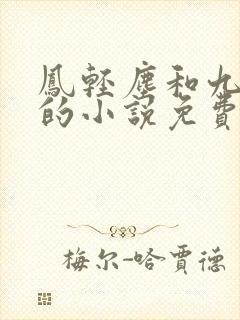 鳳輕塵和九
的小說免費
梅尔-哈賈德